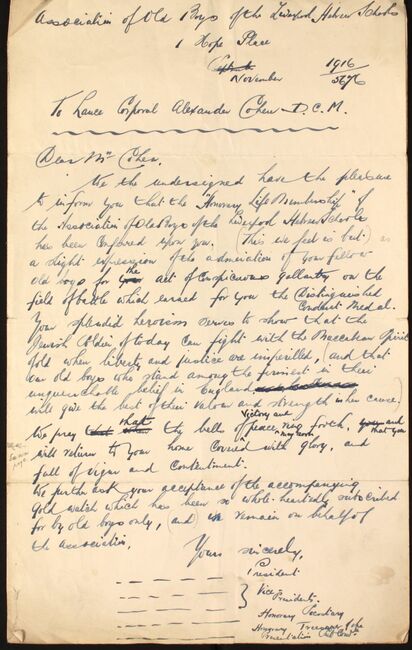 Association of Old Boys of the Liverpool Hebrew Schools
1 Hope Place
November 1916
5676
To Lance Corporal Alexander Cohen D.C.M.
Dear Mr Cohen.
We the undersigned have the pleasure
to inform you that the "Honorary Life Membership" of
the Association of Old Boys of the Liverpool Hebrew Schools
has been conferred upon you. (This we feel is but) as
a slight expression of the admiration of your fellow
old boys for the act of conspicuous gallantry on the
field of battle which earned for you the Distinguished
Conduct Medal.
Your splendid heroism serves to show that the
Jewish Soldier of today can fight with the Maccabean Spirit
of old when liberty and justice are imperilled, (and that
our old boys who stand among the firmest in their
unquenchable belief in England
will give the best of their valour and strength in her cause.)
We pray that the bells of victory and peace may ring forth, and
that you
will return to your home covered with glory, and
full of vigor and contentment.
We further ask your acceptance of the accompanying
gold watch which has been so whole-heartedly subscribed
for by old boys only, (and) we remain on behalf of
the Association,
Yours sincerely,
President
Vice
Presidents.
Honorary Secretary
Honorary Treasurer of the
Presentation Sub Comtee